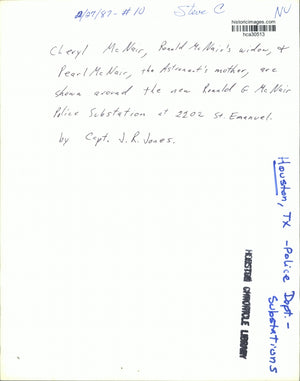 10/27/87 - #10
Steve C
NU
historicimages.com
hca30513
Cheryl McNair, Ronald McNair's widow, &
Pearl McNair, the Astronaut's mother, are
shown around the new Ronald G McNair
Police Substation at 2202 St. Emanuel.
by Capt. J.R. Jones.
Houston, TX - Police Dept. -
Substations
HOUSTON CHRONICLE LIBRARY